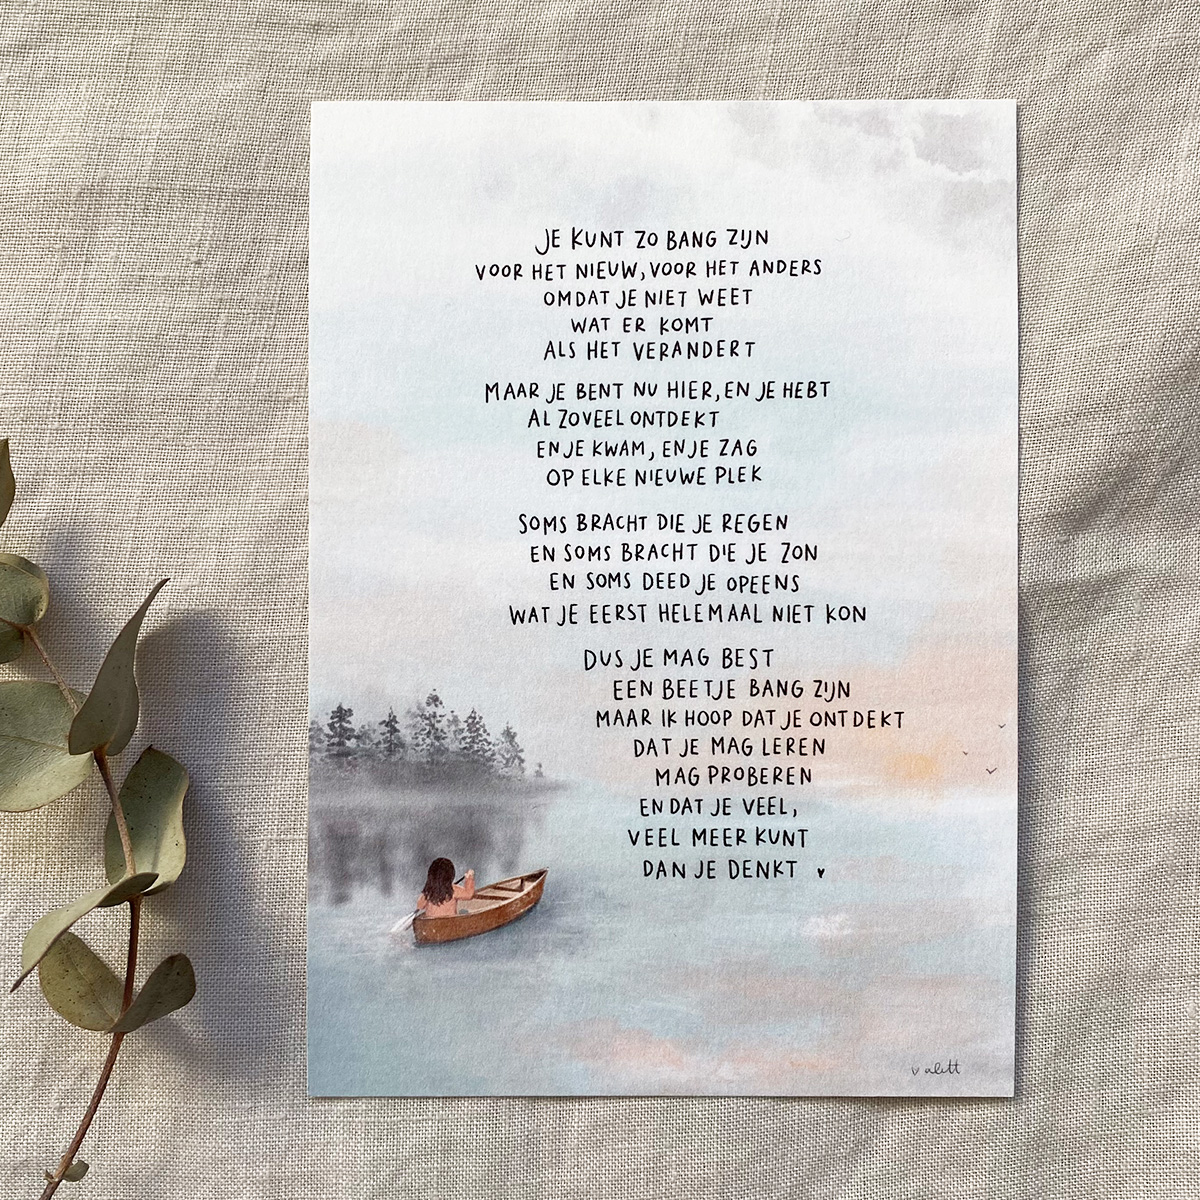 JE KUNT ZO BANG ZIJN
VOOR HET NIEUW, VOOR HET ANDERS
OMDAT JE NIET WEET
WAT ER KOMT
ALS HET VERANDERT
MAAR JE BENT NU HIER, EN JE HEBT
AL ZOVEEL ONTDEKT
EN JE KWAM, EN JE ZAG
OP ELKE NIEUWE PLEK
SOMS BRACHT DIE JE REGEN
EN SOMS BRACHT DIE JE ZON
EN SOMS DEED JE OPEENS
WAT JE EERST HELEMAAL NIET KON
DUS JE MAG BEST
EEN BEETJE BANG ZIJN
MAAR IK HOOP DAT JE ONTDEKT
DAT JE MAG LEREN
MAG PROBEREN
EN DAT JE VEEL,
VEEL MEER KUNT
DAN JE DENKT